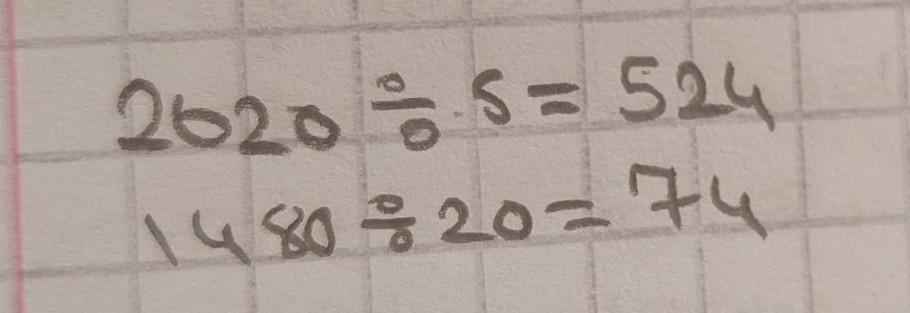 2620 ÷ 5 = 524
1480 ÷ 20 = 74